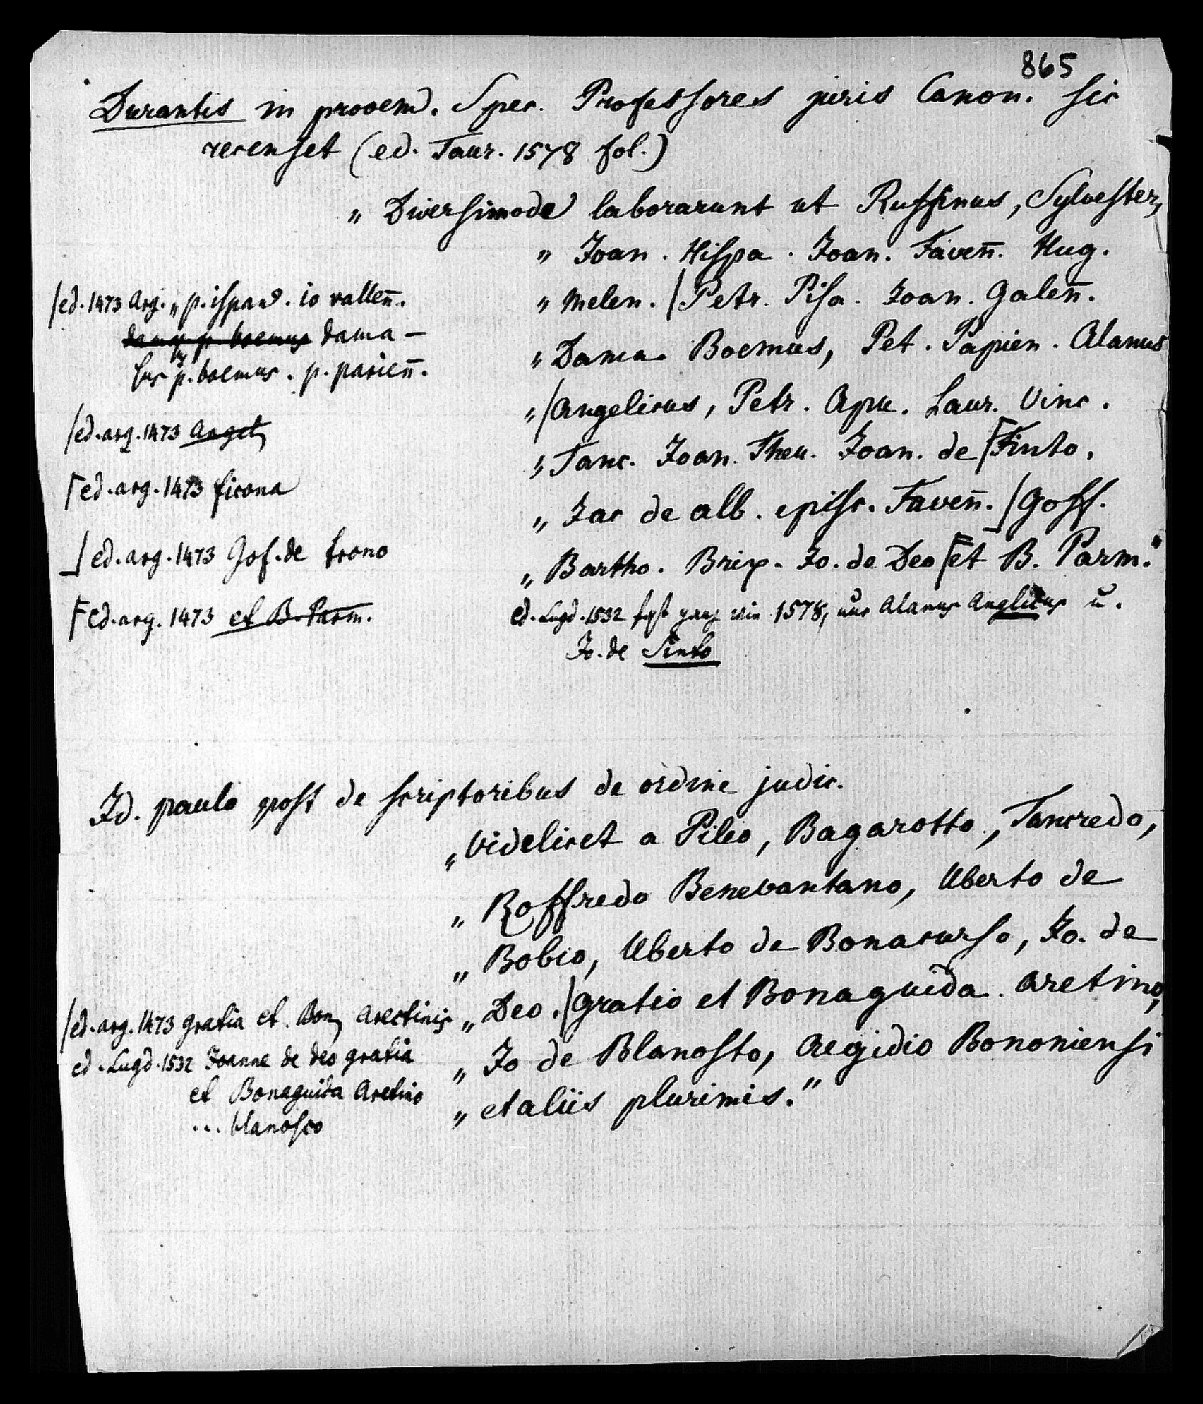 865
Durantis in prooem. Spec. Professores juris Canon. sic
recenset (ed. Taur. 1578 fol.)
„ Diversimode laborarunt ut Ruffinus, Sylvester,
„ Joan. Hispa. Joan. Faven̄. Hug.
„ Melen. /Petr. Pisa. Joan. Galen̄.
„ Dama. Boemus, Pet. Papien. Alanus
„ /Angelicus, Petr. Apu. Laur. Vinc.
„ Tanc. Joan. Theu. Joan. de ⌈Finto.
„ Jac de alb. episc. Faven̄. ⌋Goff.
„ Bartho. Brix. Jo. de Deo ⌈et B. Parm."
ed. Lugd. 1532 1578, nur Alanus Anglicus u.
Jo. de Sinto
/ed. 1473 Arg. „ p. ispan. io vallen̄.
p. boemus dama-
sus p. boemus. p. papien̄.
/ed. arg. 1473 Angel
⌈ed. arg. 1473 ficona
⌋ed. arg. 1473 Gof. de trono
⌈ed. arg. 1473 et B. Parm.
Id. paulo post de scriptoribus de ordine judic.
„ videlicet a Pileo, Bagarotto, Tancredo,
„ Roffredo Benevantano, Uberto de
„ Bobio, Uberto de Bonacurso, Jo. de
„ Deo. /Gratio et Bonaguida. Aretino,
„ Jo de Blanosto, Aegidio Bononiensi
„ et aliis plurimis."
/ed. arg. 1473 gratia et. Bon Arectinis
ed. Lugd. 1532 Joanne de deo gratia
et Bonaguida Aretino
... blanosco